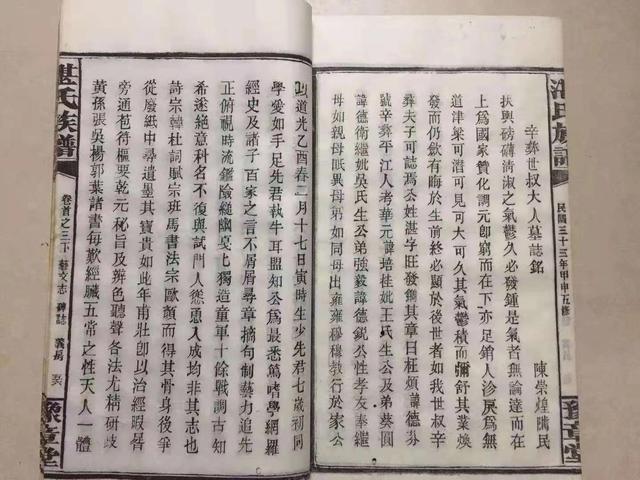 湛氏族譜
民國三十三年甲申五修
豫章堂
辛彝世叔大人墓誌銘
陳崇煌隣民
扶輿磅礴清淑之氣鬱久必發鍾是氣者無論達而在
上為國家贊化調元卽窮而在下亦足銷人沴戾爲無
道津梁可潛可見可大可久其氣鬱積而彌舒其業煥
發而仍歛有晦於生前終必顯於後世者如我世叔辛
彝夫子可誌焉公姓湛字旺發鵬其章日枉煩諱德芬
號辛彝平江人考華元諱培桂妣王氏生公及弟葵圓
諱德衛繼妣吳氏生公弟強毅諱德銳公性孝友奉繼
母如親母眂異母弟如同母出雍雍穆穆敎行於家公
以道光乙酉春二月十七日寅時生少先君七歲初同
學愛如手足先君執牛耳盟知公為最悉篤嗜學網羅
經史及諸子百家之言不屑屑尋章摘句制藝力追先
正俯視時流鑑險縋幽戛七獨造童軍十餘戰調古知
希遂絶意科名不復與試門人慫恿入成均非其志也
詩宗韓杜詞賦宗班馬書法宗歐顏而得其骨身後爭
從廢紙中尋遺墨其寶貴如此年甫壯卽以治經暇晷
旁通苞符樞要乾元秘旨及辨色聽聲各法尤精研歧
黃孫張吳楊郭葉諸書每歎經臟五常之性天人一體
湛氏族譜
卷首之三下
藝文志
碑誌
豫章堂